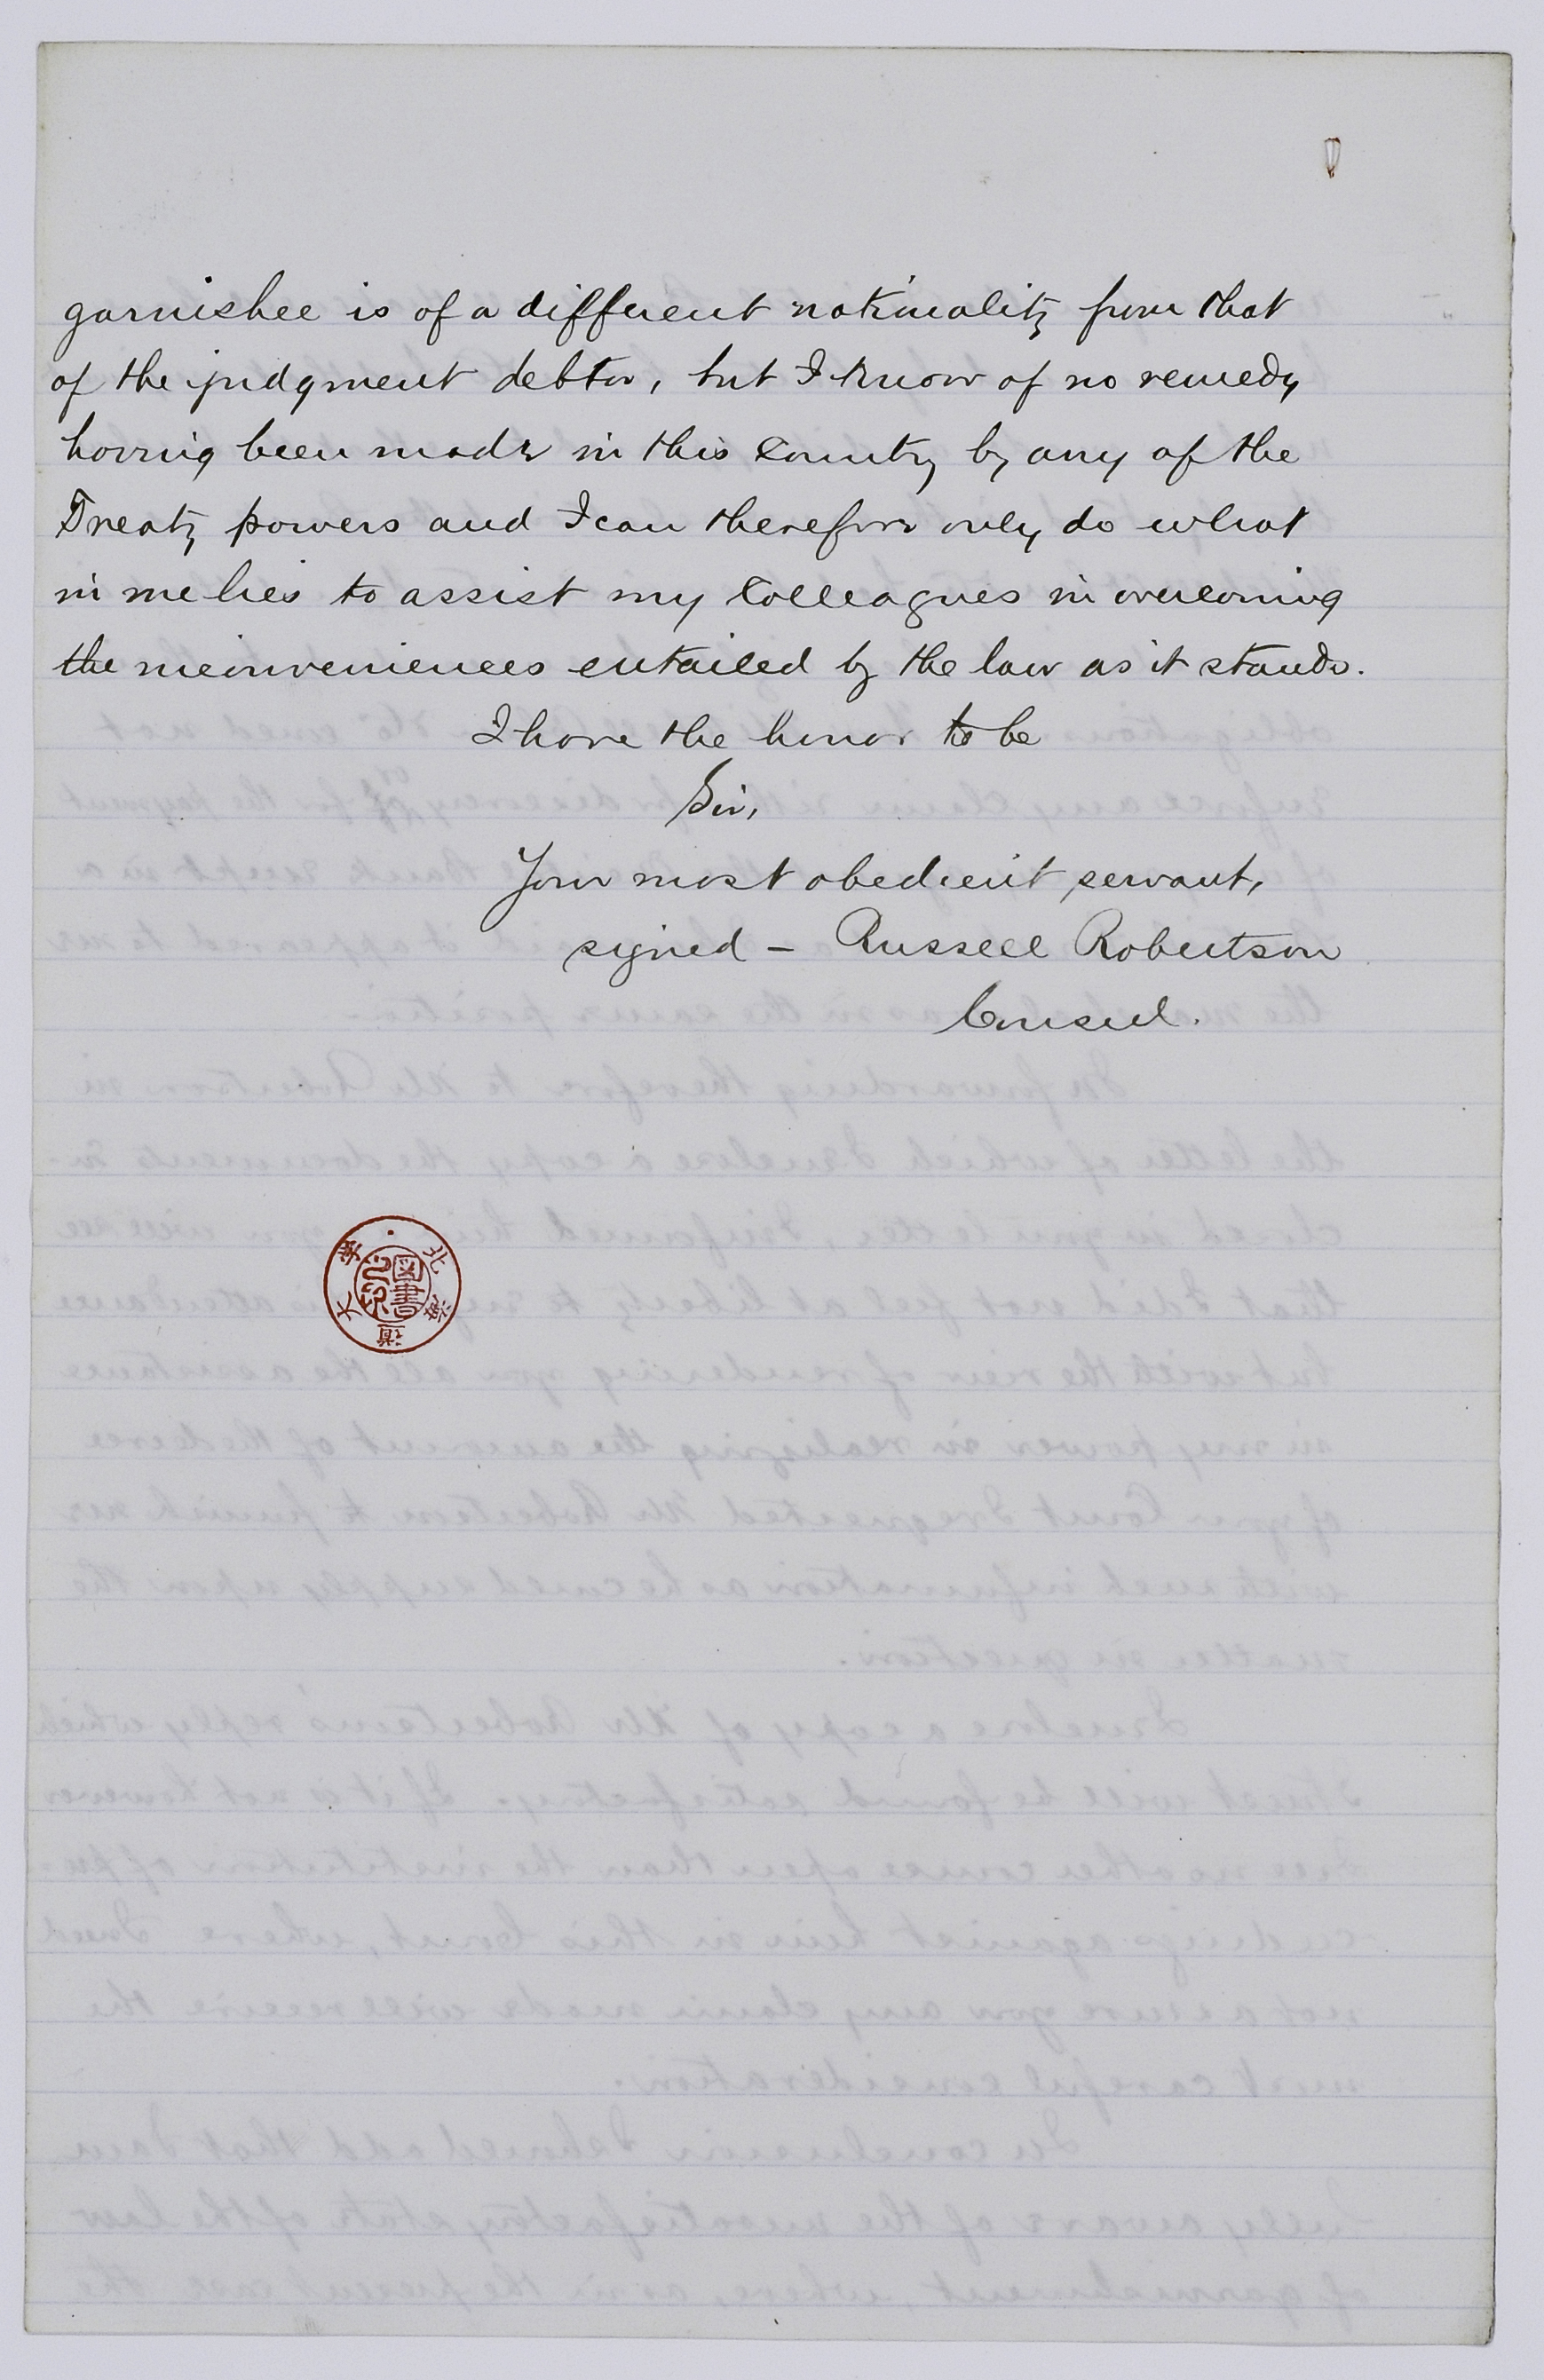 garnishee is of a different nationality from that
of the judgment debtor, but I know of no remedy
having been made in this Country by any of the
Treaty powers and I can therefore only do what
in me lies to assist my Colleagues in overcoming
the inconveniences entailed by the law as it stands.
I have the honor to be
Sir,
Your most obedient servant,
signed - Russell Robertson
Consul.
北海道大學
圖書之印